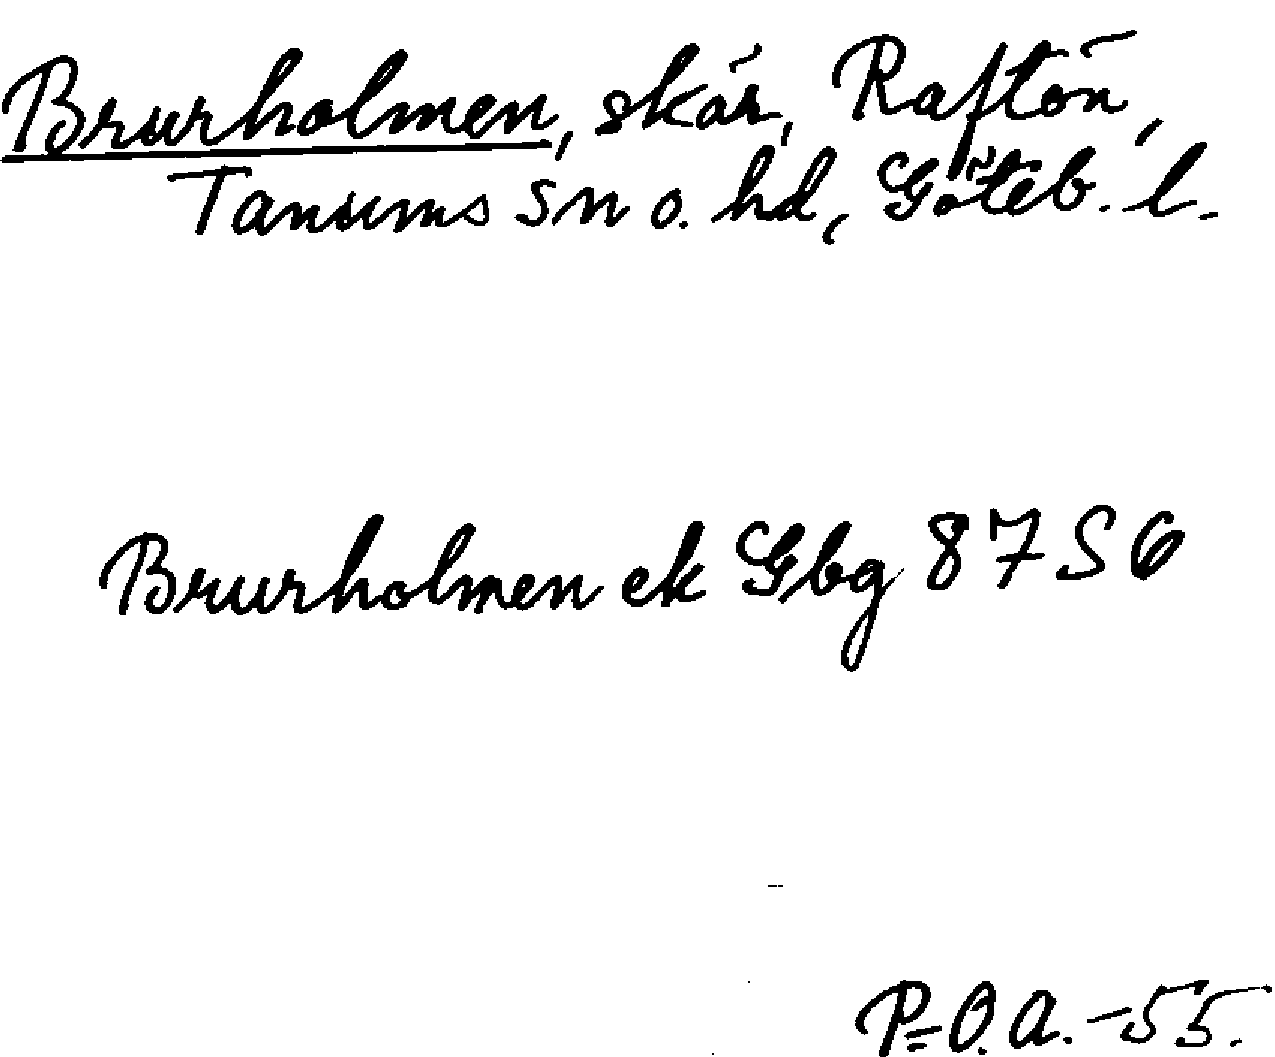 Brurholmen, skär, Raftön,
Tanums sn o. hd, Göteb. l.
Brurholmen ek Gbg 87 S6
P=O.A. -55.